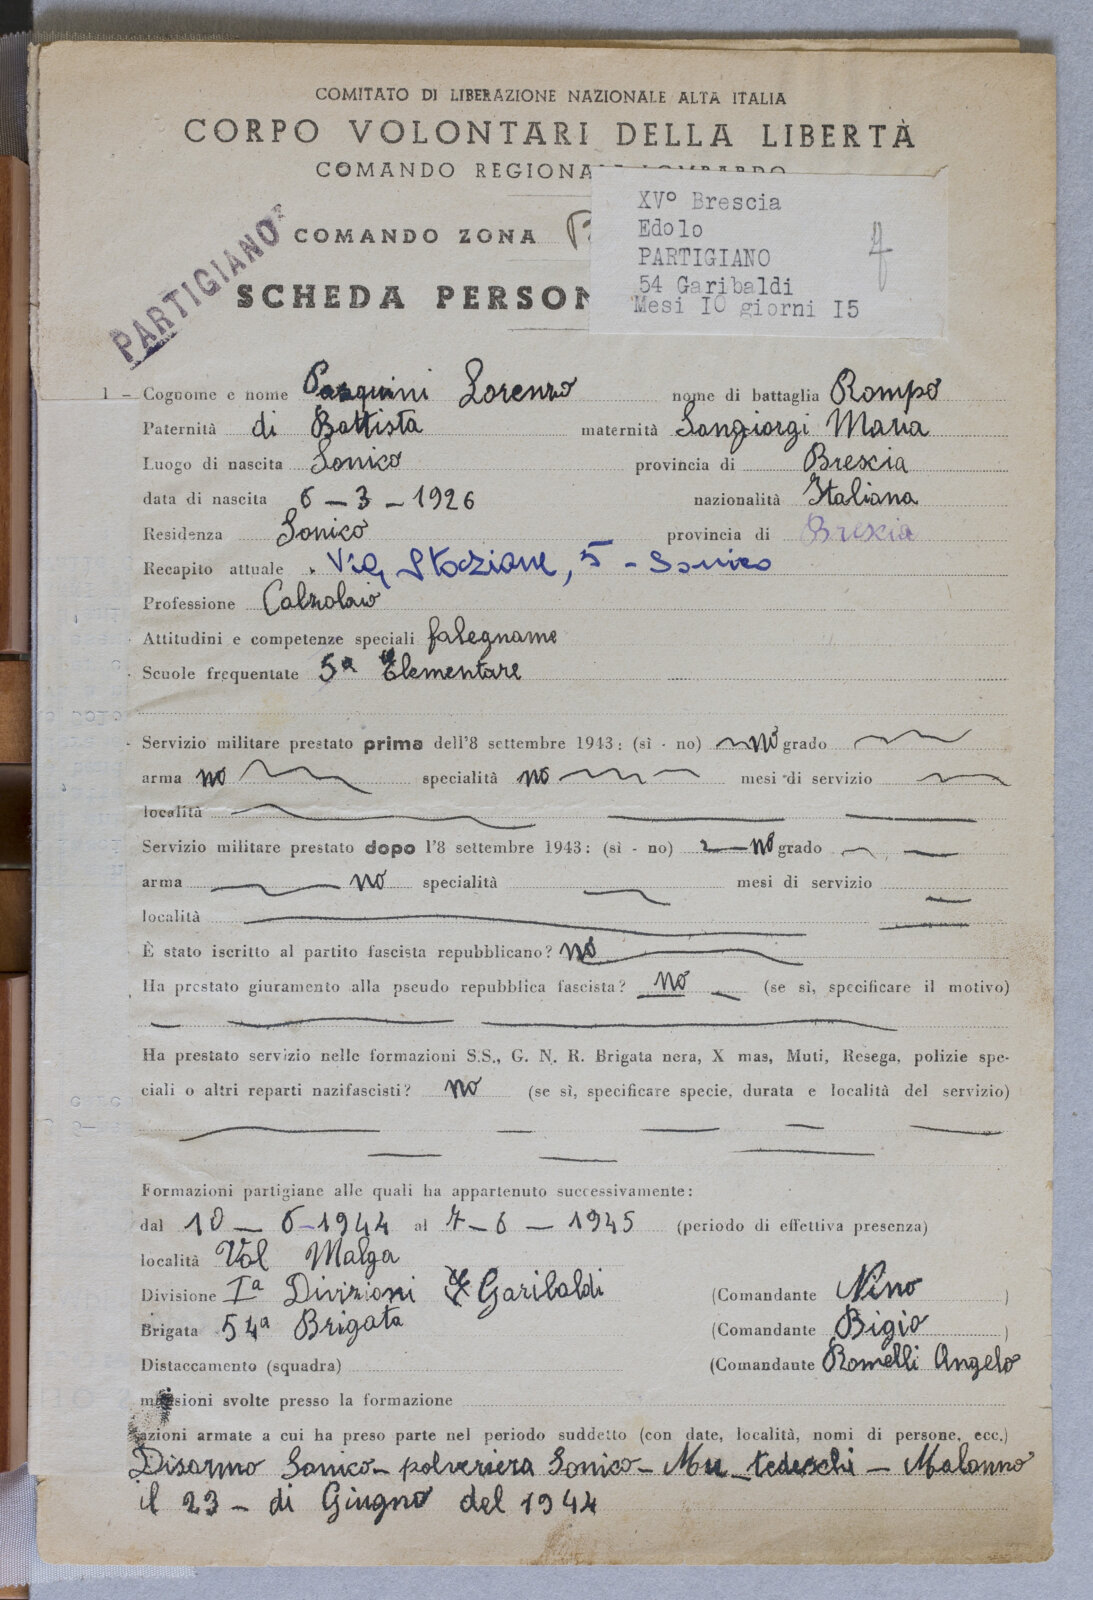 COMITATO DI LIBERAZIONE NAZIONALE ALTA ITALIA
CORPO VOLONTARI DELLA LIBERTÀ
COMANDO REGIONALE LOMBARDO
XVº Brescia
Edolo
PARTIGIANO
54 Garibaldi
Mesi IO giorni I5
PARTIGIANO
COMANDO ZONA
SCHEDA PERSON
1 - Cognome e nome Pasquini Lorenzo nome di battaglia Rompo
Paternità di Battista maternità Sangiorgi Maria
Luogo di nascita Sonico provincia di Brescia
data di nascita 6 - 3 - 1926 nazionalità Italiana
Residenza Sonico provincia di Brescia
Recapito attuale Via Stazione, 5 - Sonico
Professione Calzolaio
Attitudini e competenze speciali falegname
Scuole frequentate 5ª Elementare
Servizio militare prestato prima dell'8 settembre 1943: (sì - no) no grado
arma no specialità no mesi di servizio
località
Servizio militare prestato dopo l'8 settembre 1943: (sì - no) no grado
arma no specialità mesi di servizio
località
È stato iscritto al partito fascista repubblicano? no
Ha prestato giuramento alla pseudo repubblica fascista? no (se sì, specificare il motivo)
Ha prestato servizio nelle formazioni S.S., G. N. R. Brigata nera, X mas, Muti, Resega, polizie spe-
ciali o altri reparti nazifascisti? no (se sì, specificare specie, durata e località del servizio)
Formazioni partigiane alle quali ha appartenuto successivamente:
dal 10 - 6 - 1944 al 7 - 6 - 1945 (periodo di effettiva presenza)
località Val Malga
Divisione Iª Divizioni Garibaldi (Comandante Nino )
Brigata 54ª Brigata (Comandante Bigio )
Distaccamento (squadra) (Comandante Romelli Angelo
missioni svolte presso la formazione
azioni armate a cui ha preso parte nel periodo suddetto (con date, località, nomi di persone, ecc.)
Disarmo Sonico - polveriera Sonico - tedeschi - Malonno
il 23 - di Giugno del 1944